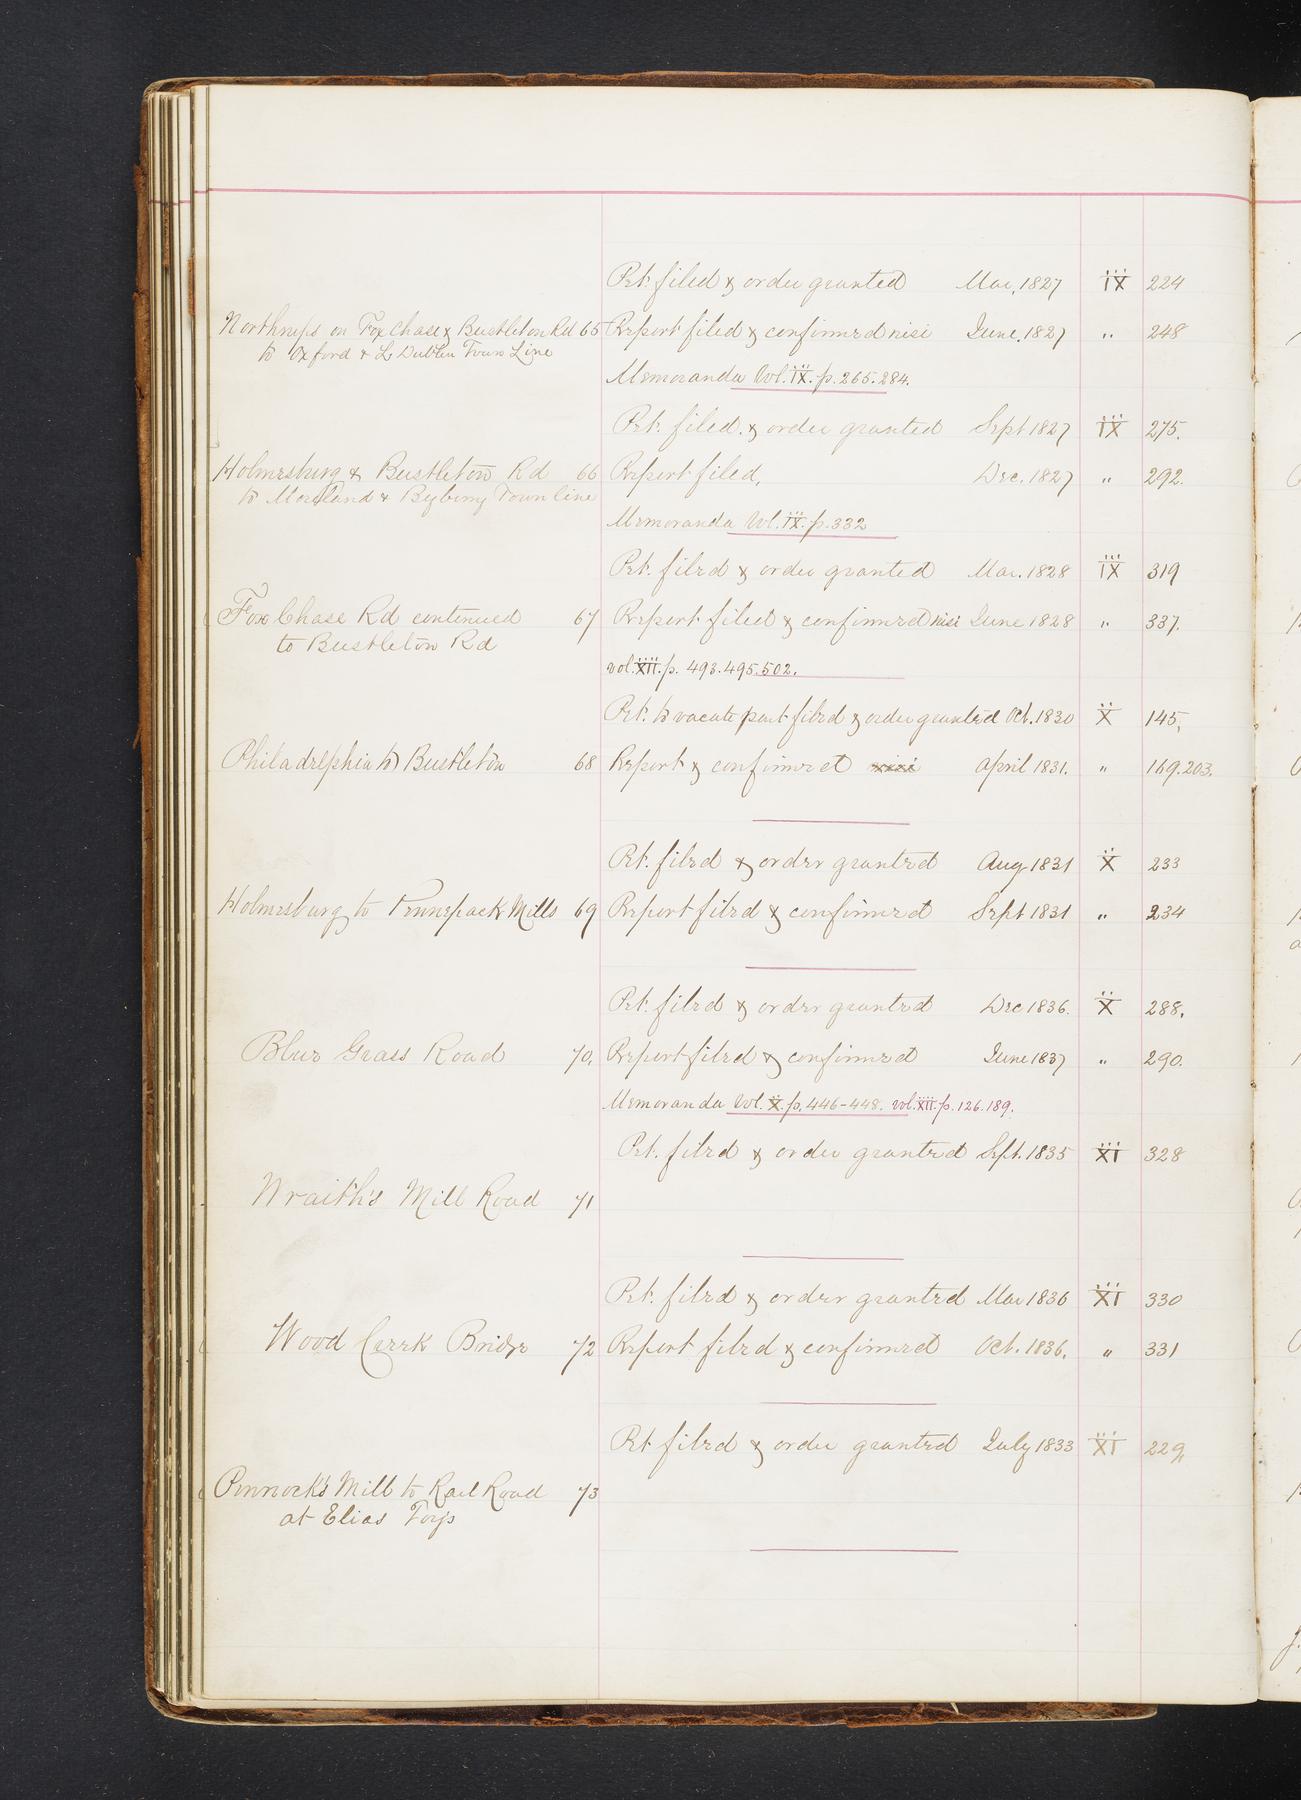 Pet. filed & order granted Mar. 1827 IX 224
Northrups on Fox Chase & Bustleton Rd 65 Report filed & confirmed nisi June. 1827 " 248
to Oxford & L Dublin Town Line
Memoranda Vol. IX. p. 265. 284.
Pet. filed. & order granted Sept 1827 IX 275.
Holmesburg & Bustleton Rd 66 Report filed, Dec. 1827 " 292.
to Moreland & Byberry Town line
Memoranda Vol. IX. p. 332
Pet. filed & order granted Mar. 1828 IX 319
Fox Chase Rd continued 67 Report filed & confirmed nisi June 1828 " 337.
to Bustleton Rd
vol. XII. p. 493. 495. 502.
Pet. to vacate part filed & order granted Oct. 1830 X 145,
Philadelphia to Bustleton 68 Report & confirmed nisi April 1831. " 169. 203.
Pet. filed & order granted Aug 1831 X 233
Holmesburg to Pennepack Mills 69 Report filed & confirmed Sept 1831 " 234
Pet. filed & order granted Dec 1836. X 288.
Blue Grass Road 70. Report filed & confirmed June 1837 " 290.
Memoranda Vol. X. p. 446-448. vol. XII. p. 126. 189.
Pet. filed & order granted Sept. 1835 XI 328
Wraith's Mill Road 71
Pet. filed & order granted Mar 1836 XI 330
Wood Creek Bridge 72 Report filed & confirmed Oct. 1836. " 331
Pet filed & order granted July 1833 XI 229
Pennock's Mill to Rail Road 73
at Elias Foy's